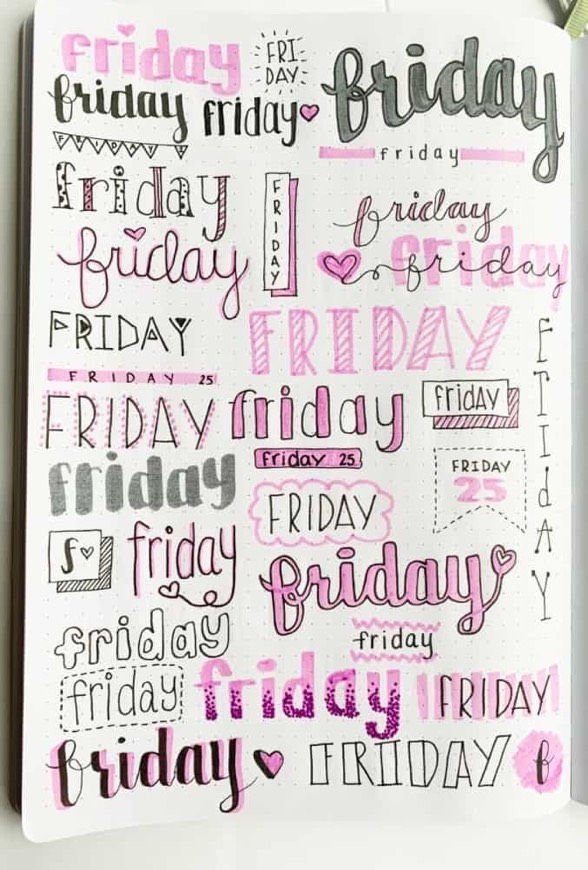 friday
FRI
DAY
friday
friday
friday
FRIDAY
friday
friday
FRIDAY
friday
friday
friday
friday
FRIDAY
FRIDAY
FrIdAY
FRIDAY 25
FRIDAY
friday
fridAY
friday
friday 25
FRIDAY
25
FRIDAY
f
friday
friday
friday
friday
friday
friday
FRIDAY
friday
FRIDAY
f